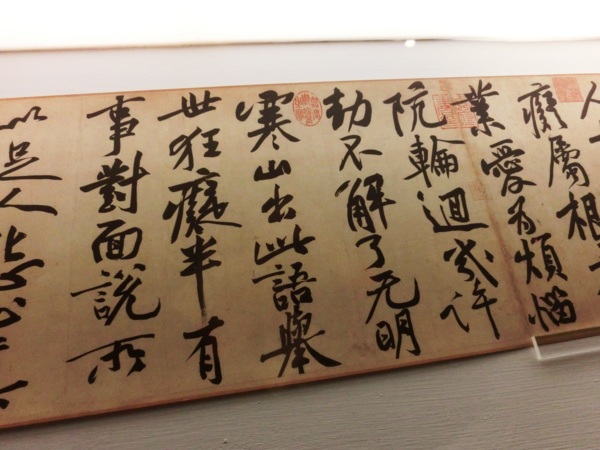 人
癡屬根
業愛为煩惱
阬輪迴幾許
劫不解了无明
寒山出此語舉
世狂癡半有
事對面說所
以足人怨心